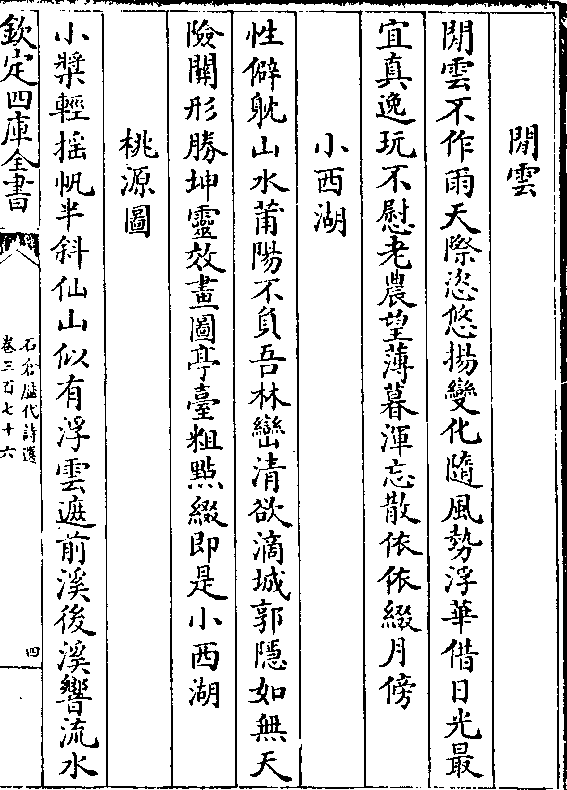 閒雲
閒雲不作雨天際恣悠揚變化隨風勢浮華借日光最
宜真逸玩不慰老農望薄暮渾忘散依依綴月傍
小西湖
性僻躭山水莆陽不負吾林巒清欲滴城郭隱如無天
險關形勝坤靈效畫圖亭臺粗㸃綴即是小西湖
桃源圖
小槳輕搖帆半斜仙山似有浮雲遮前溪後溪響流水
欽定四庫全書
石倉歷代詩選
卷三百七十六
四